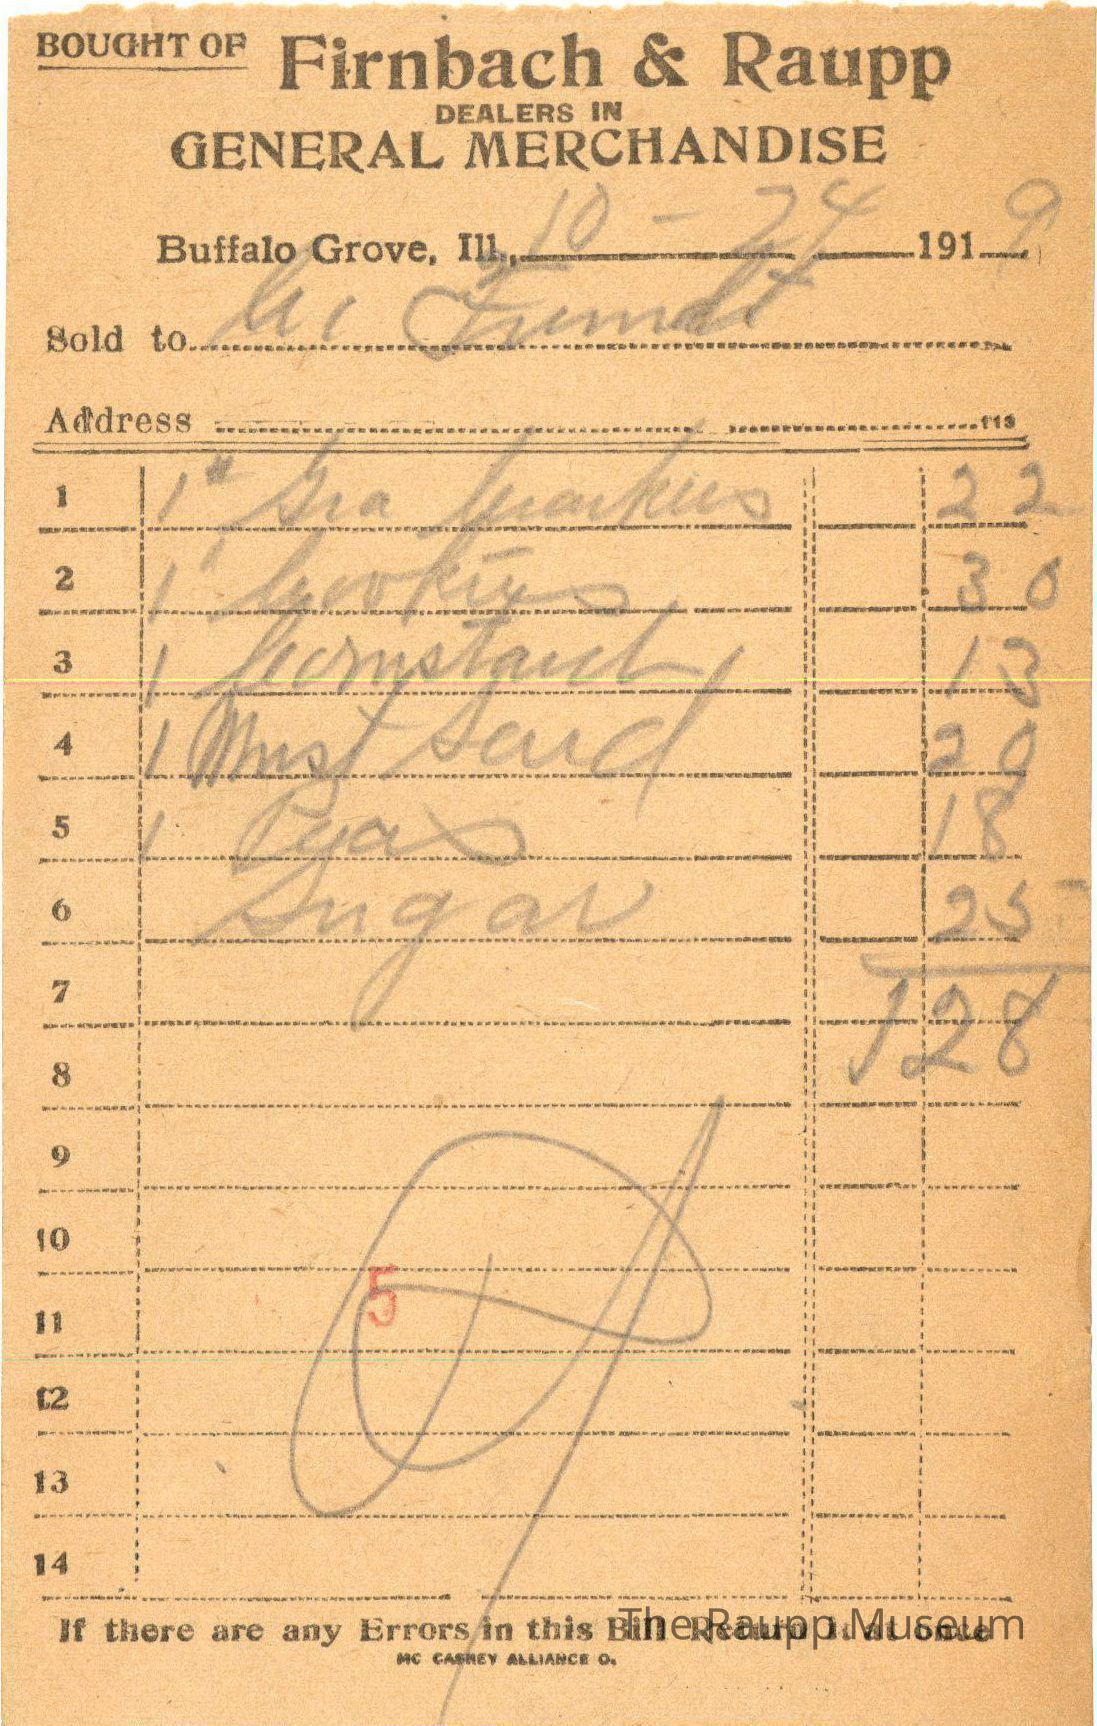 BOUGHT OF Firnbach & Raupp
DEALERS IN
GENERAL MERCHANDISE
Buffalo Grove, Ill., 10 - 24 1919
Sold to
Address
1 1 # Gra 22
2 1 " Cookies 30
3 1 Cornstarch 13
4 1 Mustard 20
5 1 Peas 18
6 Sugar 25
7 128
8
9
10
5
11
12
13
14
If there are any Errors in this Bill Return it at once
The Raupp Museum
MC CASKEY ALLIANCE O.